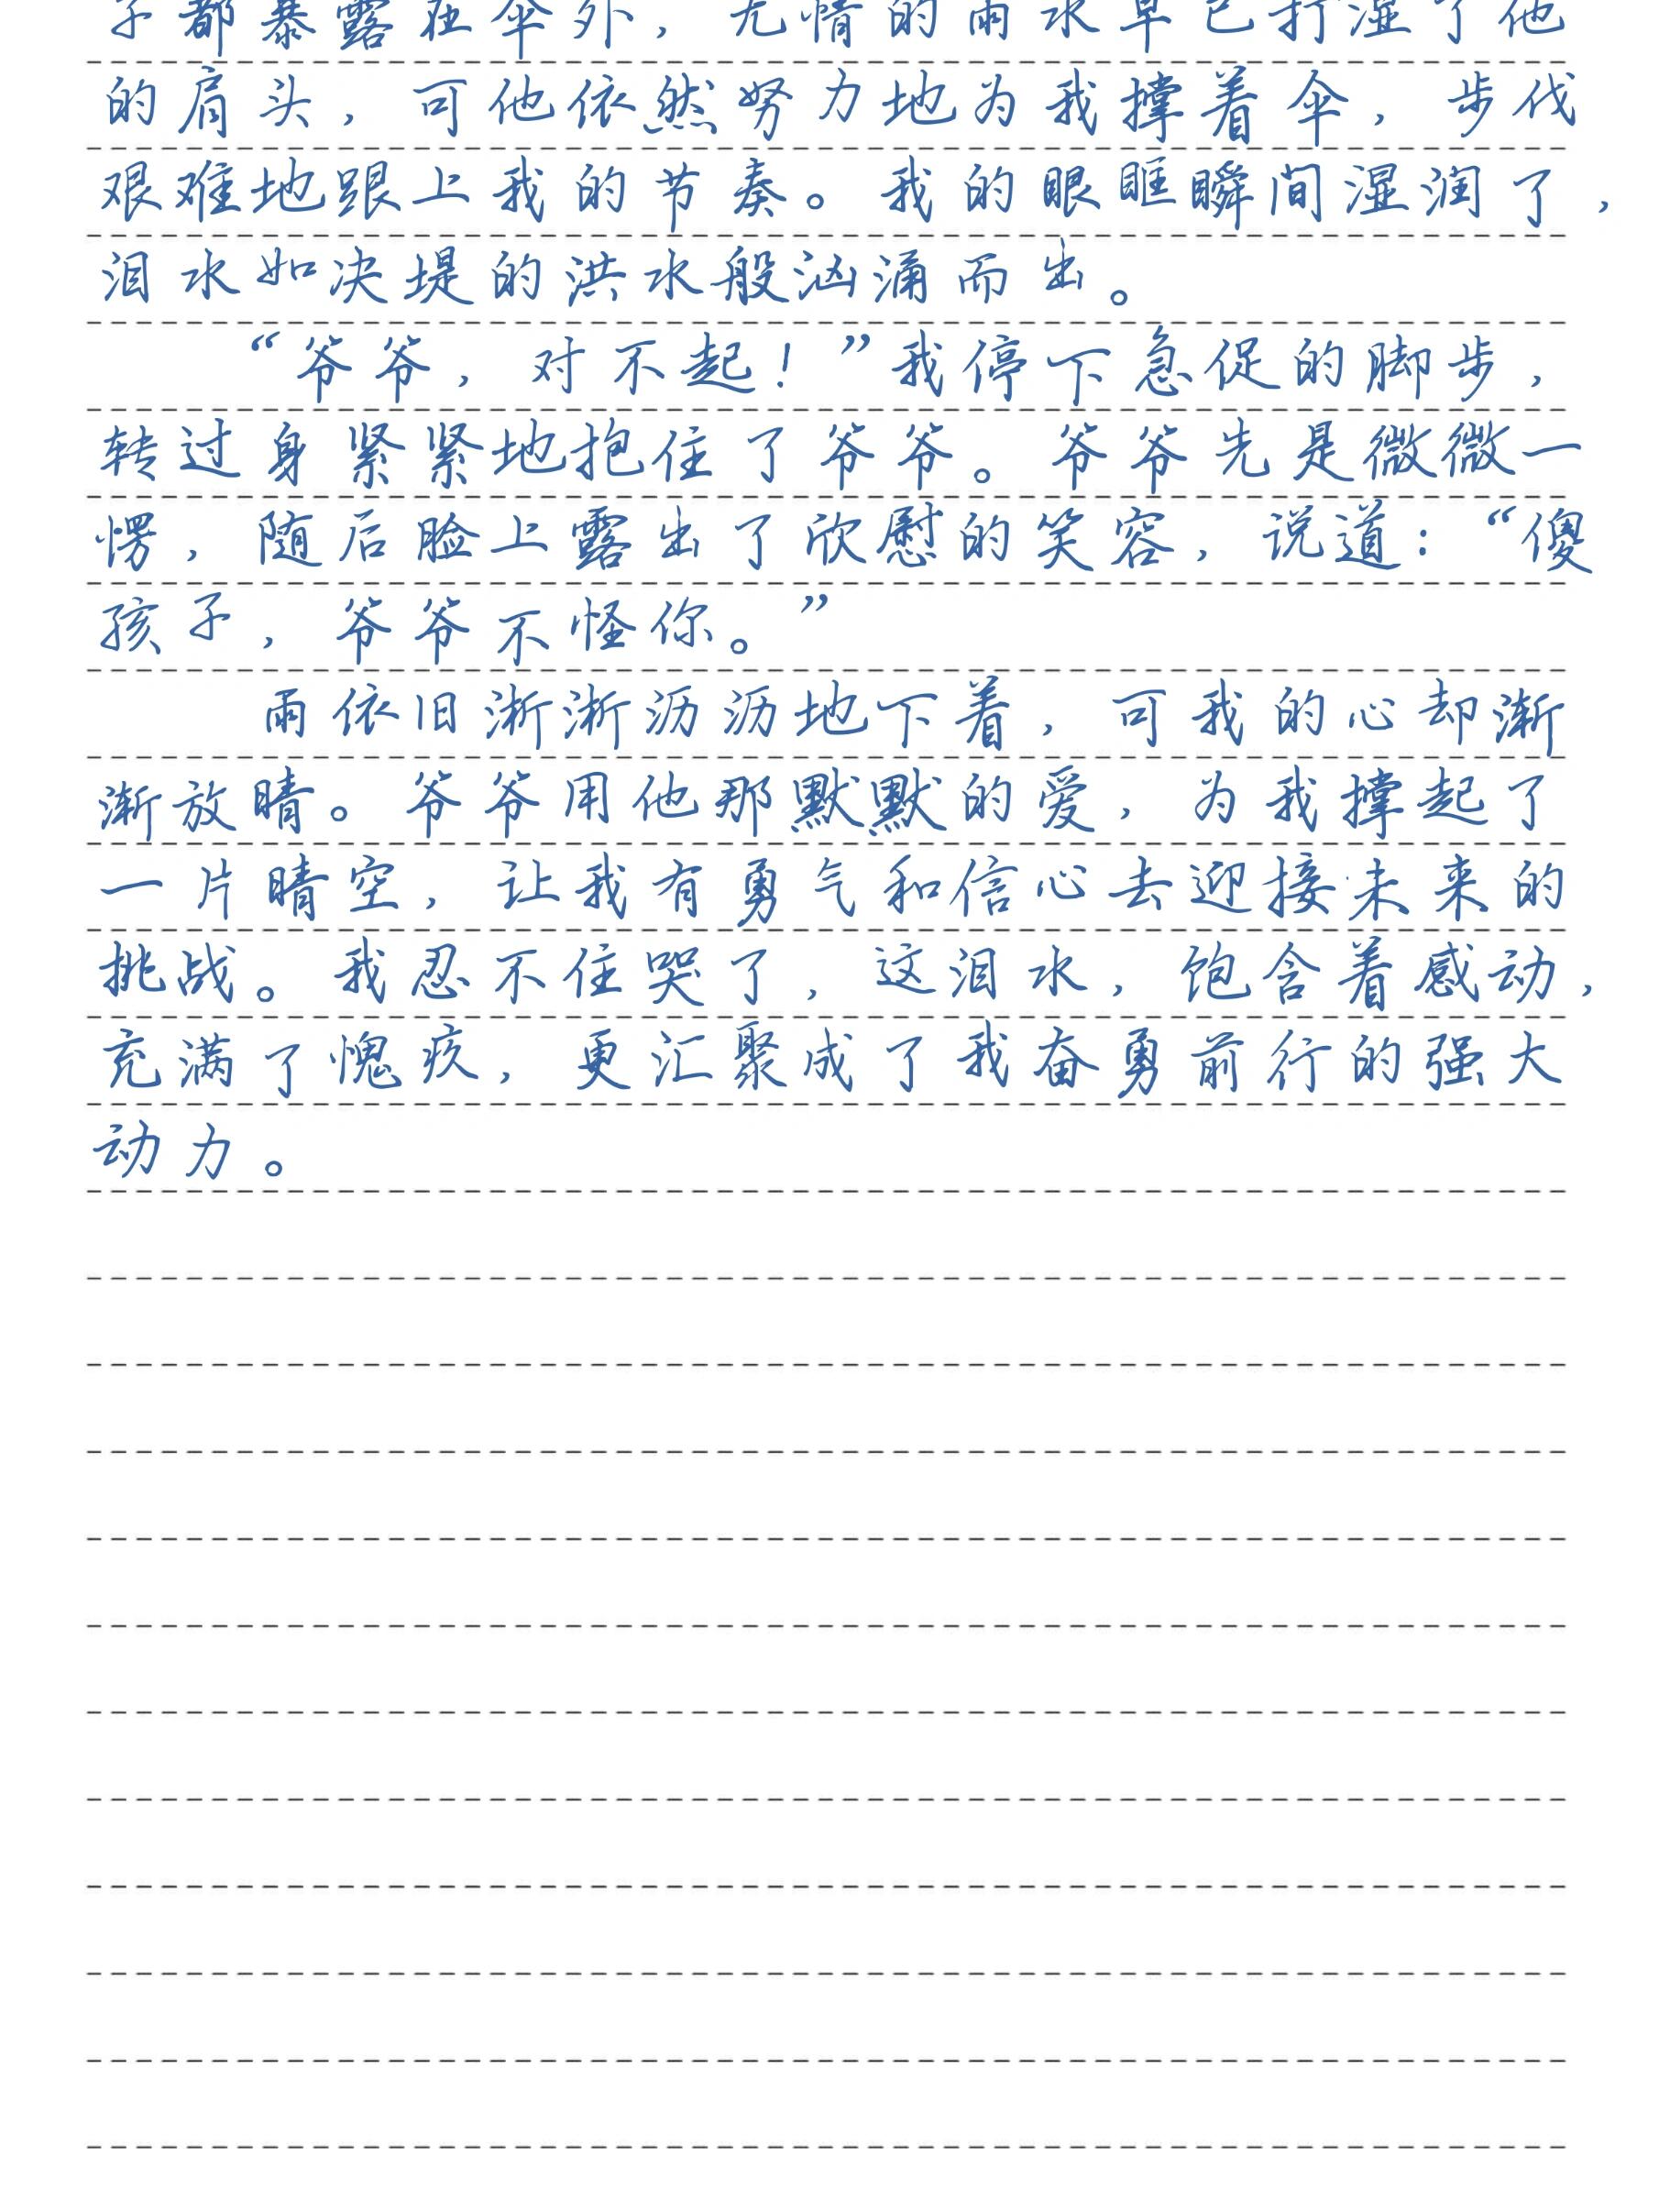 子都暴露在伞外，无情的雨水早已打湿了他
的肩头，可他依然努力地为我撑着伞，步伐
艰难地跟上我的节奏。我的眼眶瞬间湿润了，
泪水如决堤的洪水般汹涌而出。
“爷爷，对不起！”我停下急促的脚步，
转过身紧紧地抱住了爷爷。爷爷先是微微一
愣，随后脸上露出了欣慰的笑容，说道：“傻
孩子，爷爷不怪你。”
雨依旧淅淅沥沥地下着，可我的心却渐
渐放晴。爷爷用他那默默的爱，为我撑起了
一片晴空，让我有勇气和信心去迎接未来的
挑战。我忍不住哭了，这泪水，饱含着感动，
充满了愧疚，更汇聚成了我奋勇前行的强大
动力。